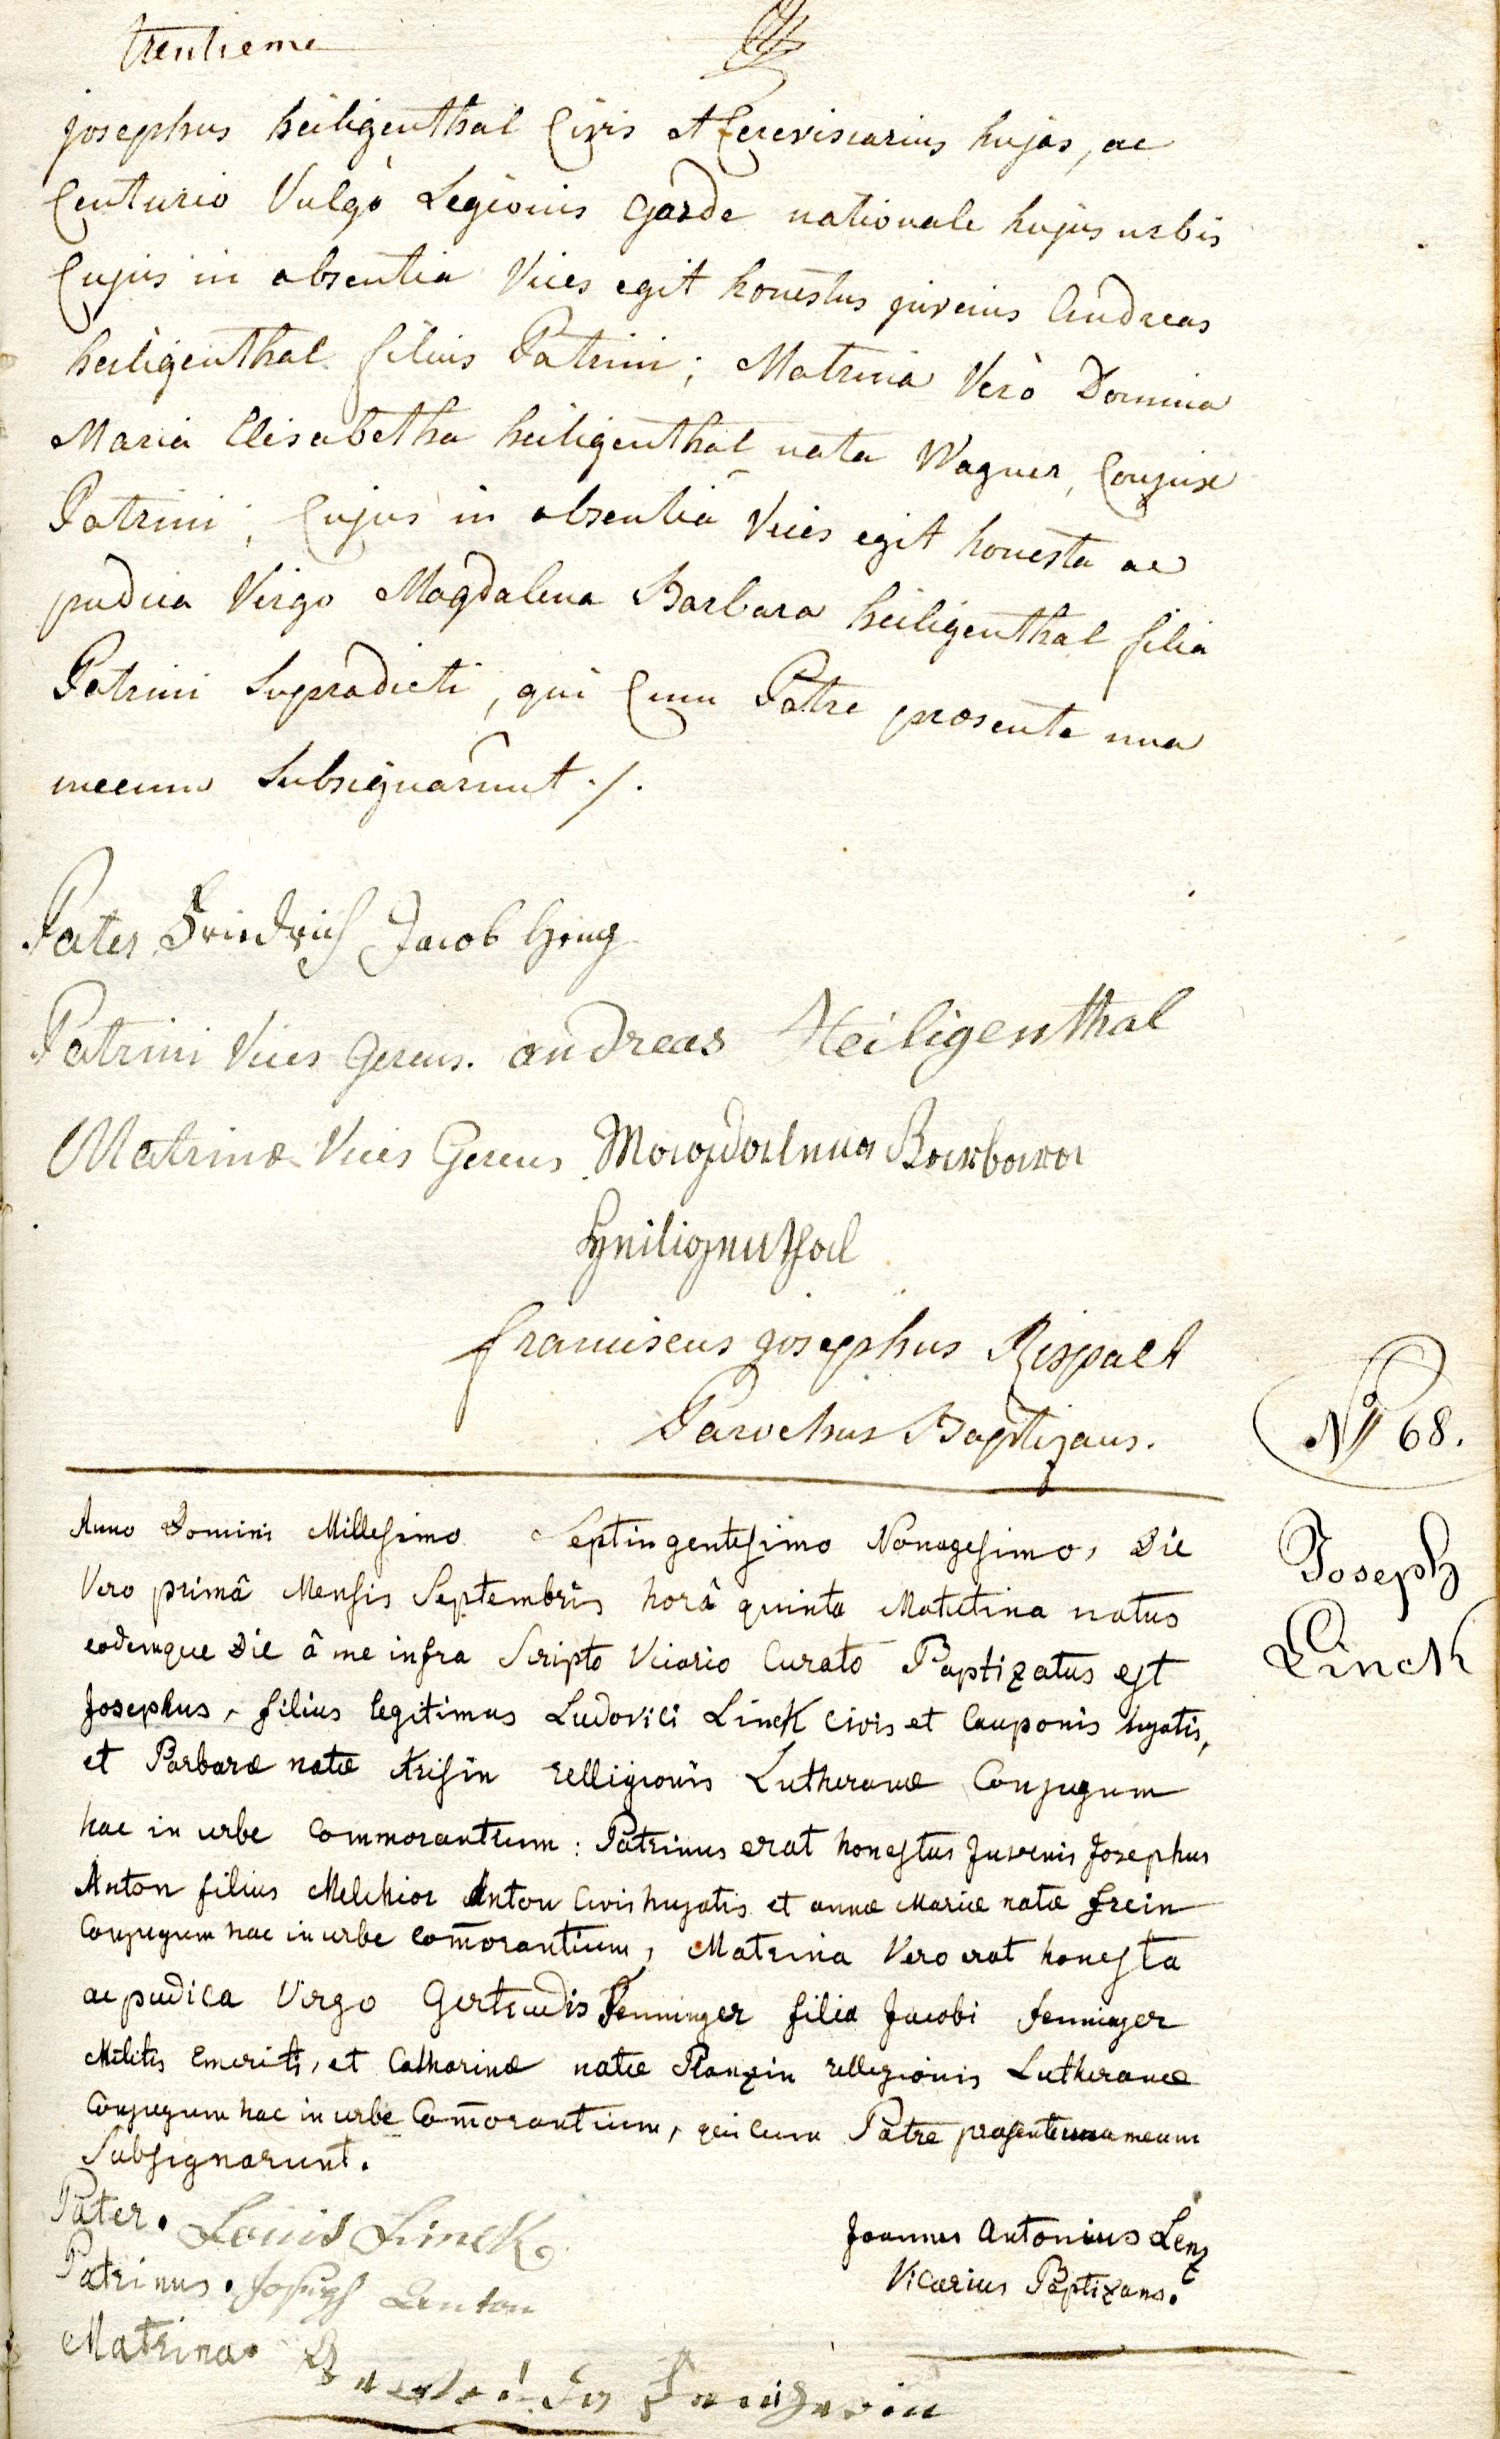 trentieme
josephus heiligenthal Civis et Cerevisiarius hujas, ac
Centurio Vulgò Legionis Garde nationale hujus urbis
Cujus in absentia Vices egit honestus juvenis Andreas
heiligenthal filius Patrini; Matrina Verò Domina
Maria Elisabetha heiligenthal nata Wagner, Conjux
Patrini; Cujus in absentiâ Vices egit honesta ac
pudica Virgo Magdalena Barbara heiligenthal filia
Patrini Supradicti, qui Cum Patre præsente una
mecum Subsignarunt ./.
Pater Friedrich Jacob
Patrini Vices Gerens. andreas Heiligenthal
Matrinæ Vices Gerens Magdalena Barbara
Heiligenthal
franciscus josephus Rispalt
Parochus Baptizans.
No 68.
Joseph
Linck
Anno Domini Millesimo Septingentesimo Nonagesimo, Die
Vero primâ Mensis Septembris horâ quinta Matutina natus
eodemque Die â me infra Scripto Vicario Curato Baptizatus est
Josephus, filius legitimus Ludovici Linck civis et Cauponis hujatis,
et Barbaræ natæ Krisin relligionis Lutheranæ Conjugum
hac in urbe Commorantium: Patrinus erat honestus Juvenis Josephus
Anton filius Melchior Anton Civis hujatis et annæ Mariæ natæ frein
Conjugum hac in urbe Com̄orantium, Matrina Vero erat honesta
ac pudica Virgo Gertrudis Fenninger filia Jacobi fenninger
Militis Emeriti, et Catharinæ natæ Planzin relligionis Lutheranæ
Conjugum hac in urbe Com̄orantium, qui cum Patre præsente una mecum
Subsignarunt.
Pater. Louis Linck
Patrinus. Joseph Anton
Matrina.
Joannes Antonius Lenz
Vicarius Baptizans.